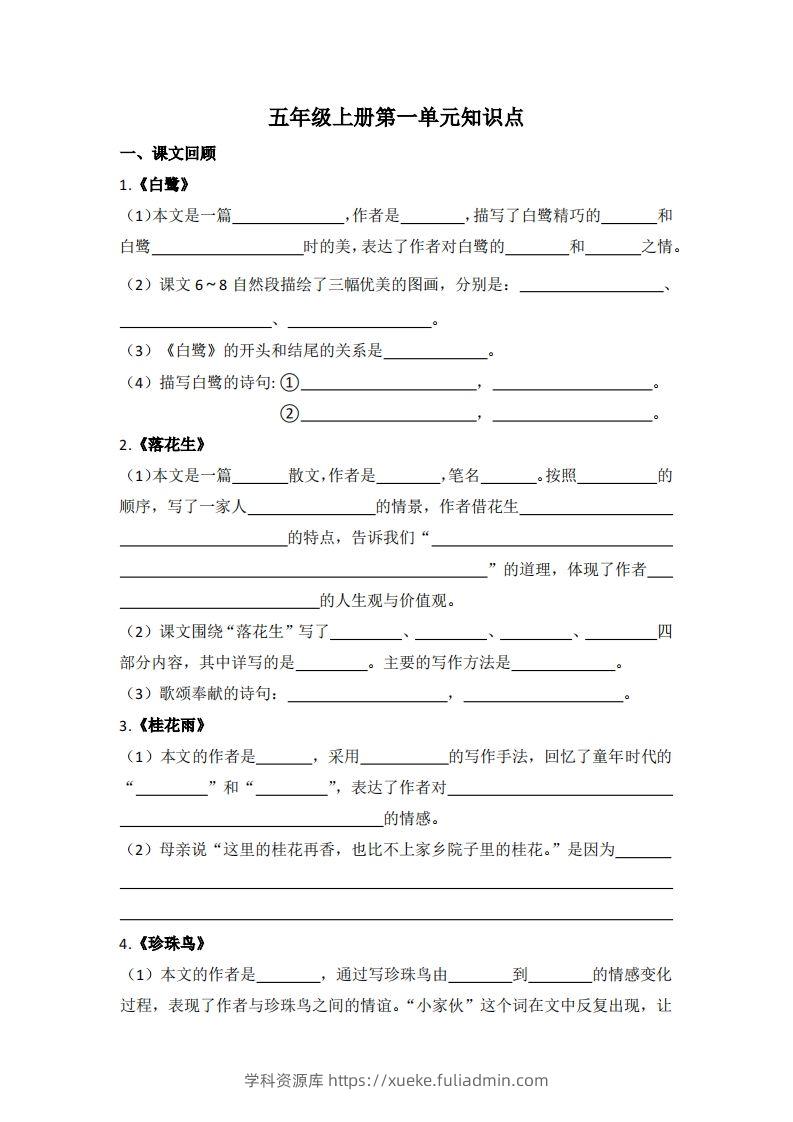 五年级上册第一单元知识点
一、课文回顾
1.《白鹭》
（1）本文是一篇______________，作者是________，描写了白鹭精巧的_______和
白鹭___________________时的美，表达了作者对白鹭的________和_______之情。
（2）课文 6～8 自然段描绘了三幅优美的图画，分别是：__________________、
___________________、__________________。
（3）《白鹭》的开头和结尾的关系是_____________。
（4）描写白鹭的诗句: ①______________________，____________________。
②______________________，____________________。
2.《落花生》
（1）本文是一篇_______散文，作者是________，笔名_______。按照__________的
顺序，写了一家人________________的情景，作者借花生___________________
_____________________的特点，告诉我们“______________________________
______________________________________________”的道理，体现了作者___
_________________________的人生观与价值观。
（2）课文围绕“落花生”写了_________、_________、_________、_________四
部分内容，其中详写的是_________。主要的写作方法是_____________。
（3）歌颂奉献的诗句：____________________，____________________。
3.《桂花雨》
（1）本文的作者是_______，采用___________的写作手法，回忆了童年时代的
“_________”和“_________”，表达了作者对____________________________
_________________________________的情感。
（2）母亲说“这里的桂花再香，也比不上家乡院子里的桂花。”是因为_______
_____________________________________________________________________
_____________________________________________________________________
4.《珍珠鸟》
（1）本文的作者是________，通过写珍珠鸟由________到________的情感变化
过程，表现了作者与珍珠鸟之间的情谊。“小家伙”这个词在文中反复出现，让
学科资源库 https://xueke.fuliadmin.com